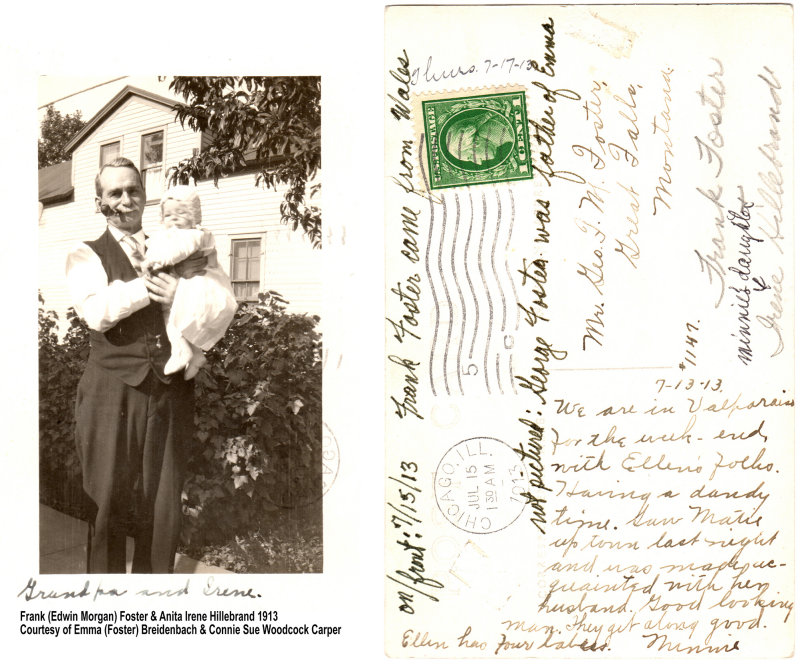 Grandpa and Irene.
Frank (Edwin Morgan) Foster & Anita Irene Hillebrand 1913
Courtesy of Emma (Foster) Breidenbach & Connie Sue Woodcock Carper
on/front: 7/15/13 Frank Foster came from Wales
not pictured: George Foster was father of Emma
Thurs. 7-17-13
U.S. POSTAGE
1 CENT 1
CHICAGO, ILL.
JUL 15
1 30 AM
1913
5
Mr. Geo. T. M. Foster,
Great Falls,
Montana
Frank Foster
&
minnie's daughter
Irene Hillebrand
#1147.
7-13-13.
We are in Valparaiso
for the week-end,
with Ellen's folks.
Having a dandy
time. Saw Matie
up town last night
and was made ac-
quainted with her
husband. Good looking
man. They get along good.
Ellen has four babies. Minnie